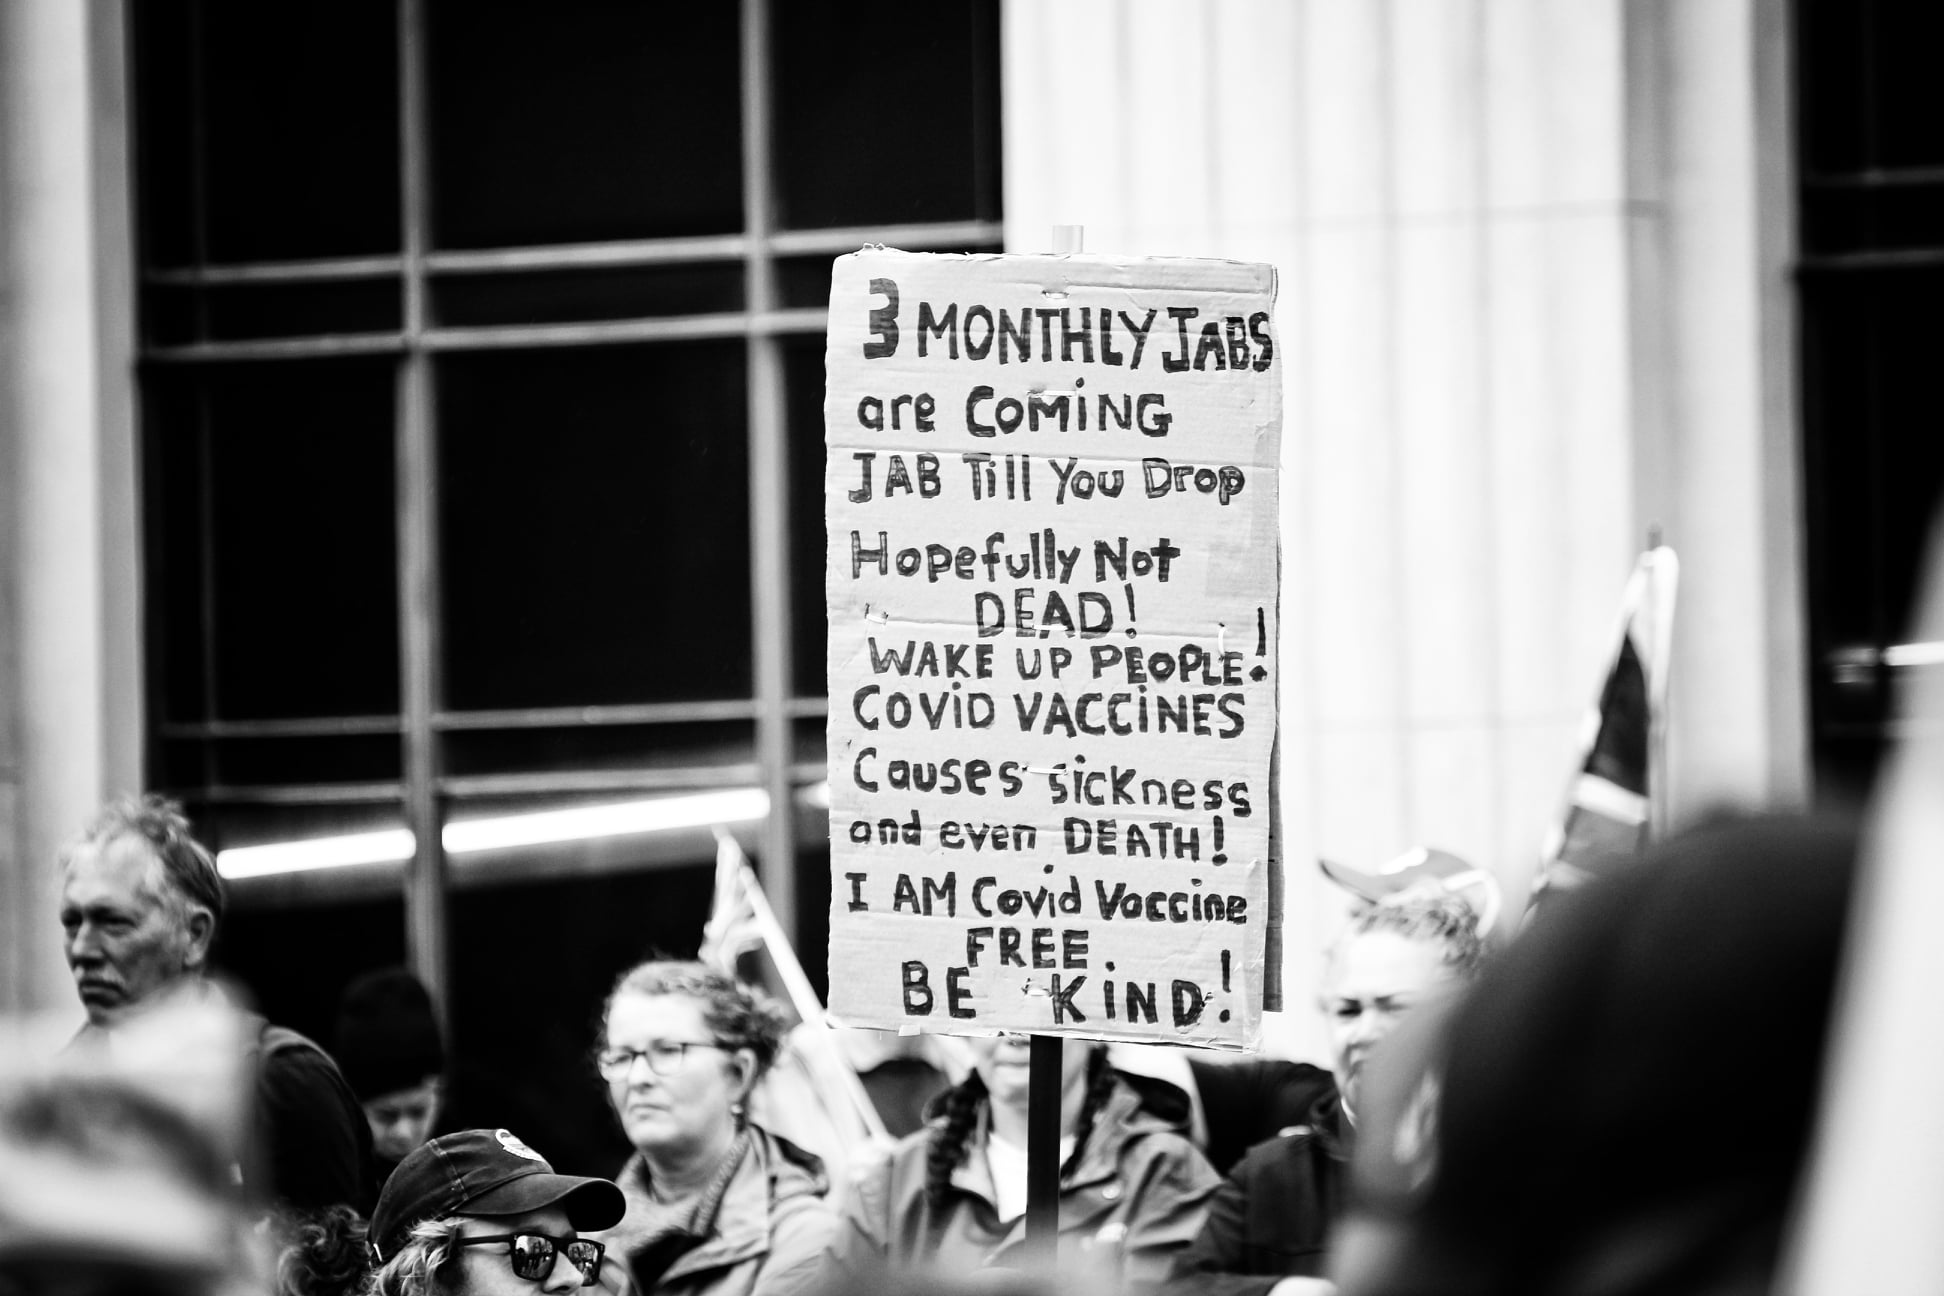 3 MONTHLY JABS
are COMiNG
JAB Till You Drop
Hopefully Not
DEAD!
WAKE UP PEOPLE!
COViD VACCiNES
Causes sickness
and even DEATH!
I AM Covid Vaccine
FREE.
BE KiND!